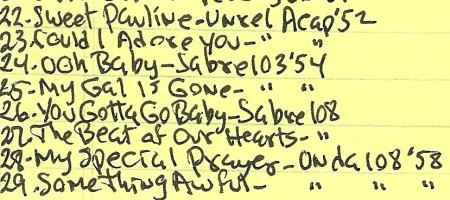 22. Sweet Pauline - Unrel Acap '52
23. Could I Adore You - " "
24. Ooh Baby - Sabre 103 '54
25 - My Gal is Gone - " "
26. You Gotta Go Baby - Sabre 108
27. The Beat of Our Hearts - "
28. My Special Prayer - Onda 108 '58
29. Something Awful - " " "